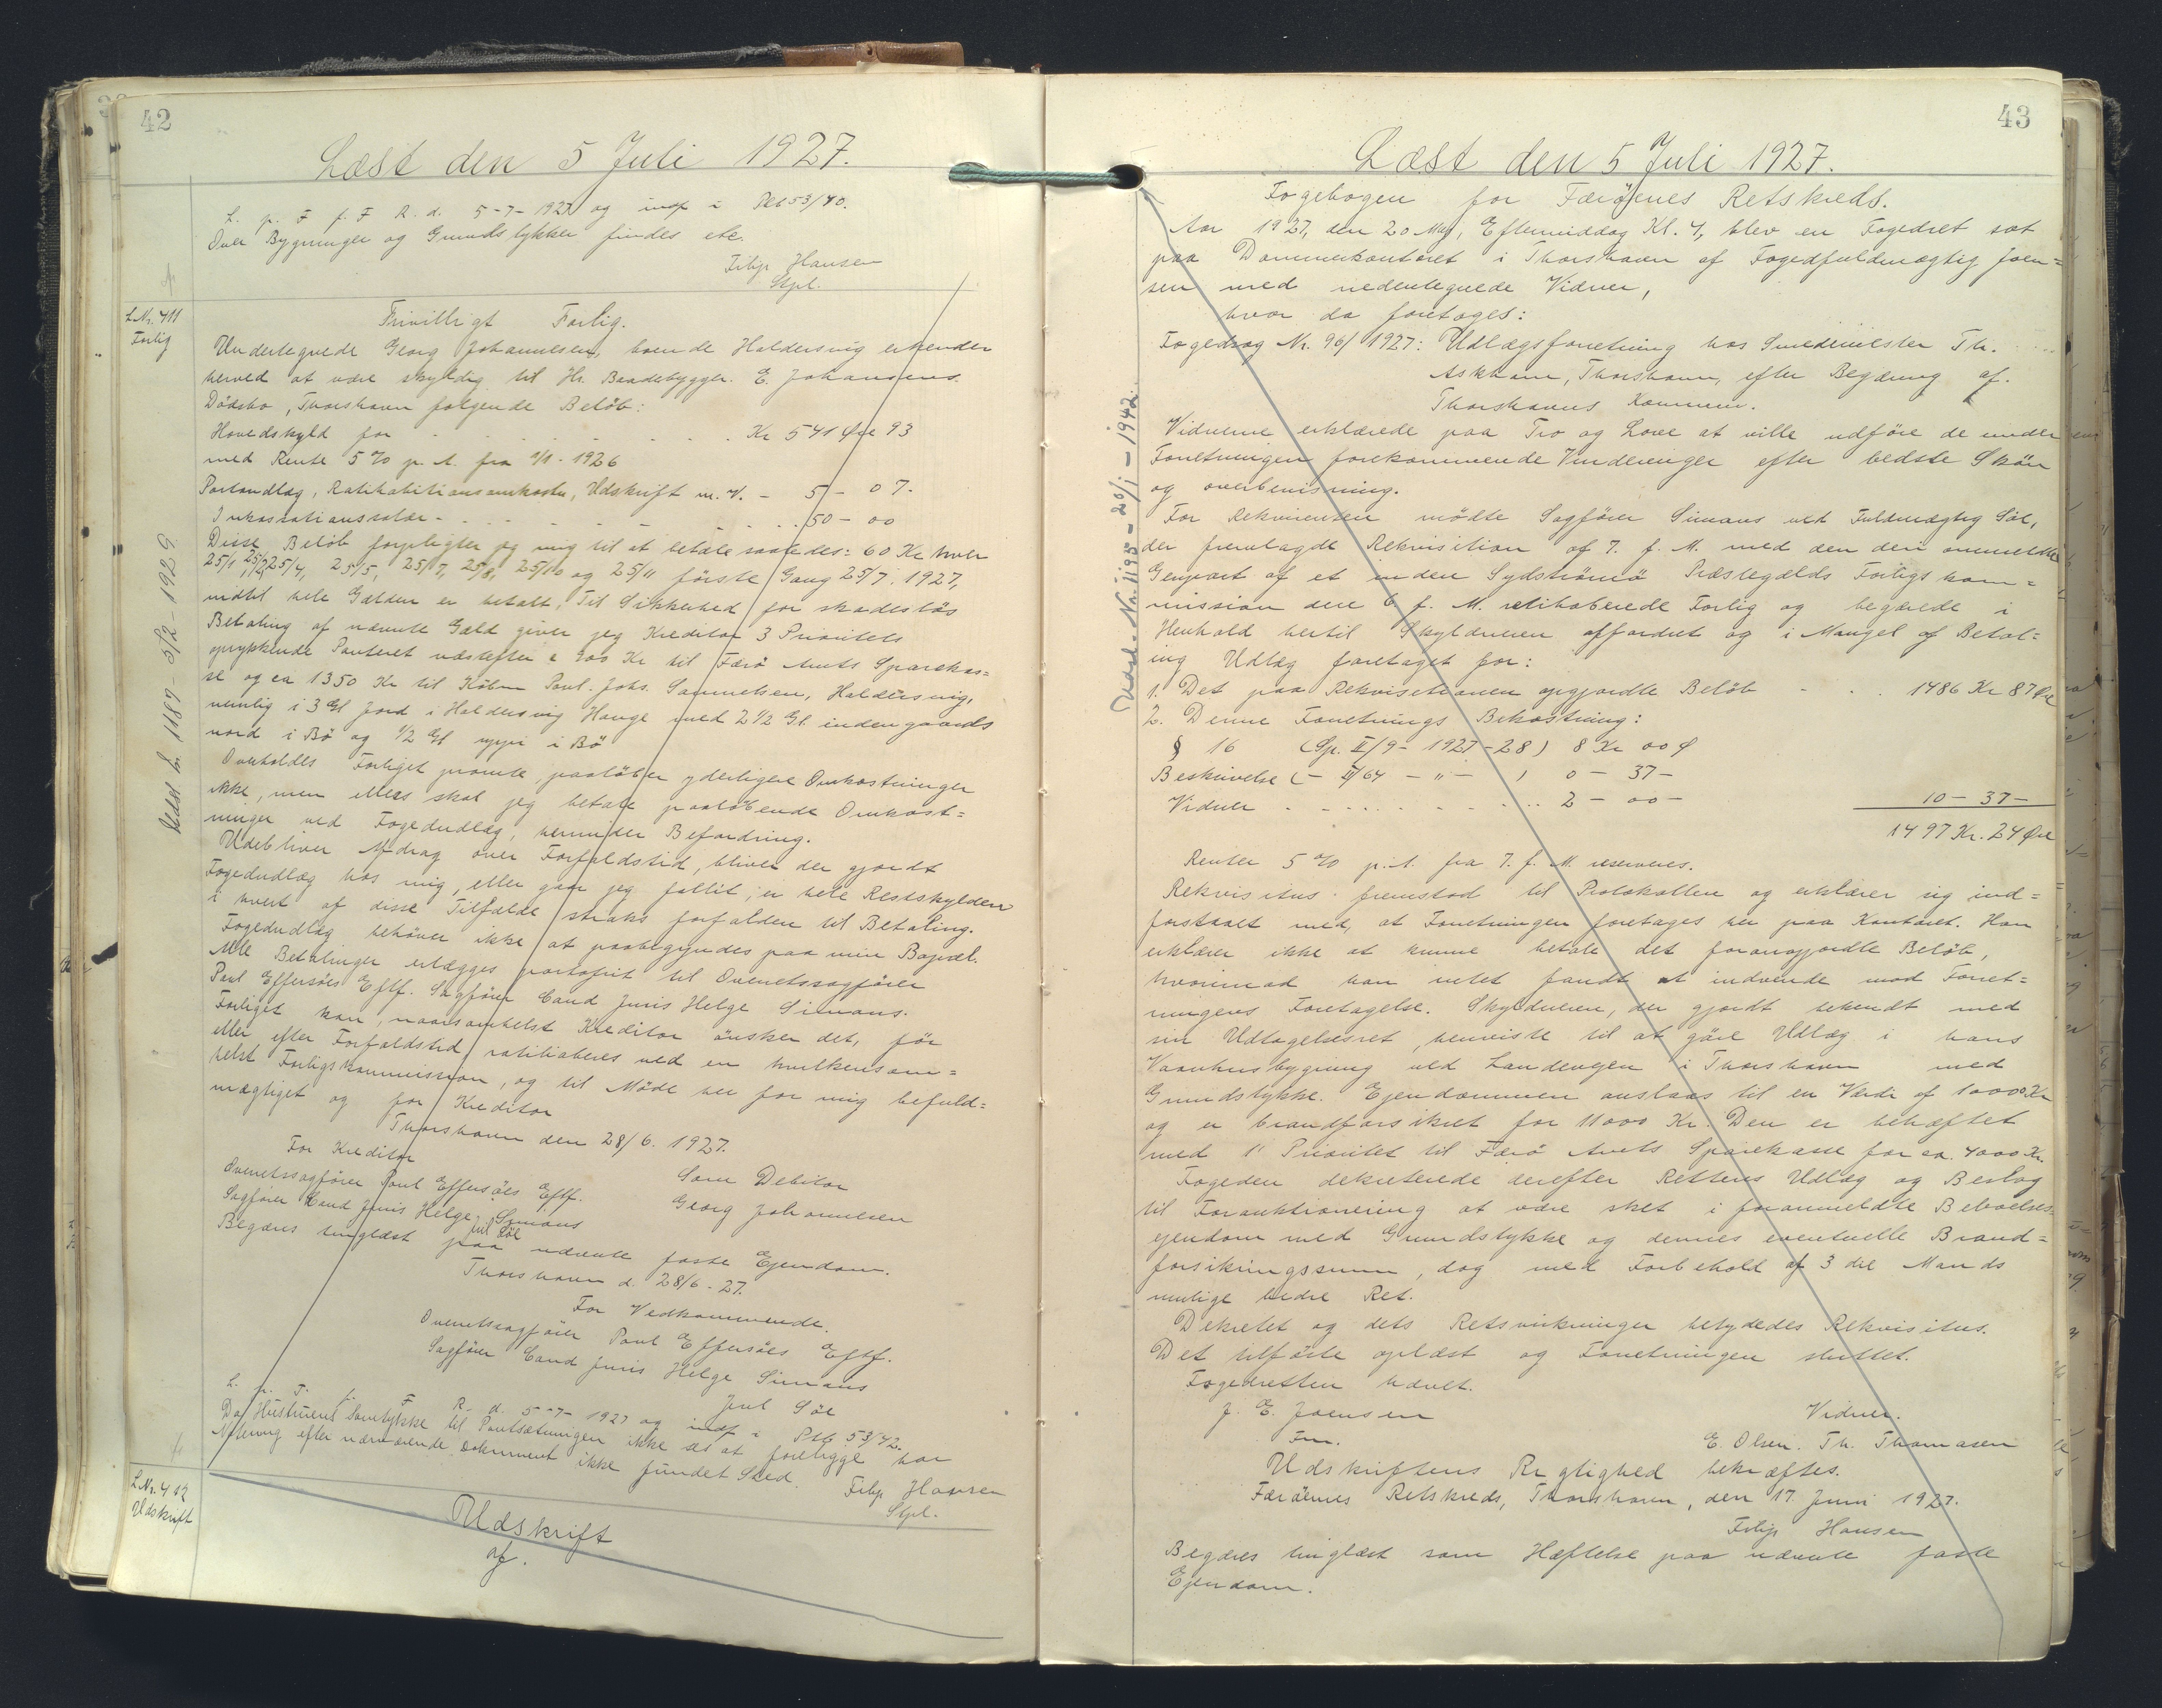 42
Læst den 5 Juli 1927.
L. p. F f. F R. d. 5-7-1927 og indf i Ptb 53/40.
Over Bygninger og Grundstykker findes ete.
Filip Hansen
Stpl.
L.Nr. 411
Forlig
Frivilligt Forlig.
Undertegnede Georg Johannesen, boende Haldersvig erkender
herved at være skyldig til Hr. Baadebygger. E. Johansens
Dödsbo, Thorshavn følgende Belöb:
Hovedskyld for - - - - - - Kr 541 Øre 93
med Rente 5 % p. A. fra 1/1 - 1926
Portoudlæg, Ratihabitionsomkostn, Udskrift m. V. - 5 - 07-
Inkassationssalær - - - - - - 50 - 00
Disse Belöb forpligter jeg mig til at betale saaledes: 60 Kr hver
25/1 25/2, 25/4, 25/5, 25/7, 25/8, 25/10 og 25/11 förste Gang 25/7. 1927,
indtil hele Gælden er betalt. Til Sikkerhed for skadeslös
Betaling af nævnte Gæld giver jeg Kreditor 3 Prioritets
oprykkende Panteret næstefter c 900 Kr til Færö Amts Sparekas=
se og ca 1350 Kr til Köbm Poul. Johs. Samuelsen, Haldersvig,
nemlig i 3 Gl Jord i Haldersvig Hauge med 2 1/2 Gl. indengaards
nord i Bö og 1/2 Gl uppi i Bö
Overholdes Forliget promte, paalöber yderligere Omkostninger
ikke, men ellers skal jeg betale paalöbende Omkost=
ninger ved Fogedudlæg, herunder Befordring.
Udebliver Afdrag over Forfaldstid, bliver der gjordt
Fogedudlæg hos mig, eller gaar jeg fallit, er hele Restskylden
i hvert af disse Tilfælde straks forfalden til Betaling.
Fogedudlæg behöver ikke at paabegyndes paa min Bopæl.
Alle Betalinger erlægges portofrit til Overretssagförer
Poul Effersöes Eftf. Sagförer Cand Juris Helge Simans.
Forliget kan, naarsomhelst Kreditor önsker det, för
eller efter Forfaldstid, ratihaberes ved en hvilkensom=
helst Forligskommission, og til Möde her for mig befuld=
mægtiget og for Kreditor
Thorshavn den 28/6. 1927.
For Kreditor
Overretssagförer Poul Effersöes Eftf.
Sagförer Cand Juris Helge Simans
Jul Söe
Som Debitor
Georg Johannesen
Begæres tinglæst paa nævnte faste Ejendom.
Thorshavn d. 28/6 - 27.
For Vedkommende.
Overretssagförer Poul Effersöes Eftf.
Sagförer Cand Juris Helge Simans
Jul Söe
L. p. F. f. F R. d. 5-7-1927 og indf i Ptb 53/42.
Da Hustruens Samtykke til Pantsætningen ikke ses at foreligge har
Notering efter nærværende Dokument ikke fundet Sted.
Filip Hansen
Stpl.
Udsl Nr. 1189 - 5/2 - 1929
L.Nr. 412
Udskrift
Udskrift
af.
43
Læst den 5 Juli 1927.
Fogebogen for Færöenes Retskreds.
Aar 1927, den 20 Maj, Eftermiddag Kl. 4, blev en Fogedret sat
paa Dommerkontoret i Thorshavn af Fogedfuldmægtig Joen=
sen med nedentegnede Vidner,
hvor da foretoges:
Fogedsag Nr. 96/1927: Udlægsforretning hos Smedemester Th.
Askham, Thorshavn, efter Begæring af.
Thorshavns Kommune.
Vidnerne erklærede paa Tro og Love at ville udföre de under
Forretningen forekommende Vurderinger efter bedste Skön
og overbevisning.
For Rekvirenten mödte Sagförer Simans ved Fuldmægtig Söe,
der fremlagde Rekvisition af 7. f. M. med den deri ommeldte
Genpart af et inden Sydströmö Præstegælds Forligskom=
mission den 6. f. M. ratihaberede Forlig og begærede i
Henhold hertil Skyldneren affordret og i Mangel af Betal=
ing Udlæg foretaget for:
1. Det paa Rekvisitionen opgjordte Belöb - - . 1486 Kr 87 Øre
2. Denne Forretnings Bekostning:
§ 16 (Sp. II/9 - 1927-28) 8 Kr 00 Ø
Beskrivelse (- II/64 - " - ) 0 - 37 -
Vidner - - - - - - 2 - 00 -
10 - 37 -
1497 Kr. 24 Øre
Renter 5 % p. A. fra 7. f. M. reserveres.
Rekvisitus fremstod til Protokollen og erklærer sig ind=
forstaaet med, at Forretningen foretages her paa Kontoret. Han
erklærer ikke at kunne betale det foranopjordte Belöb,
hvorimod han intet fandt at indvende mod Forret=
ningens Foretagelse. Skyldneren, der gjordt bekendt med
sin Udtagelsesret, henviste til at göre Udlæg i hans
Vaanhusbygning ved Landevejen i Thorshavn med
Grundstykke. Ejendommen anslaas til en Værdi af 10000 Kr
og er brandforsikret for 11000 Kr. Den er behæftet
med 1' Prioritet til Færö Amts Sparekasse for ca. 4000 Kr.
Fogeden dekreterede derefter Rettens Udlæg og Beslag
til Forauktionering at være sket i foranmeldte Beboelses=
ejendom med Grundstykke og dennes eventuelle Brand=
forsikringssum, dog med Forbehold af 3 die Mands
mulige bedre Ret.
Dekretet og dets Retsvirkninger betydedes Rekvisitus.
Det tilförte oplæst og Forretningen sluttet.
Fogedretten hævet.
J. E. Joensen
Fm.
Vidner.
E. Olsen. Th. Thomasen
Udskriftens Rigtighed bekræftes.
Færöernes Retskreds, Thorshavn, den 17 Juni 1927.
Filip Hansen
Begæres tinglæst som Hæftelse paa nævnte faste
Ejendom.
Udsl. Nr. 1195 - 20/1 - 1942.